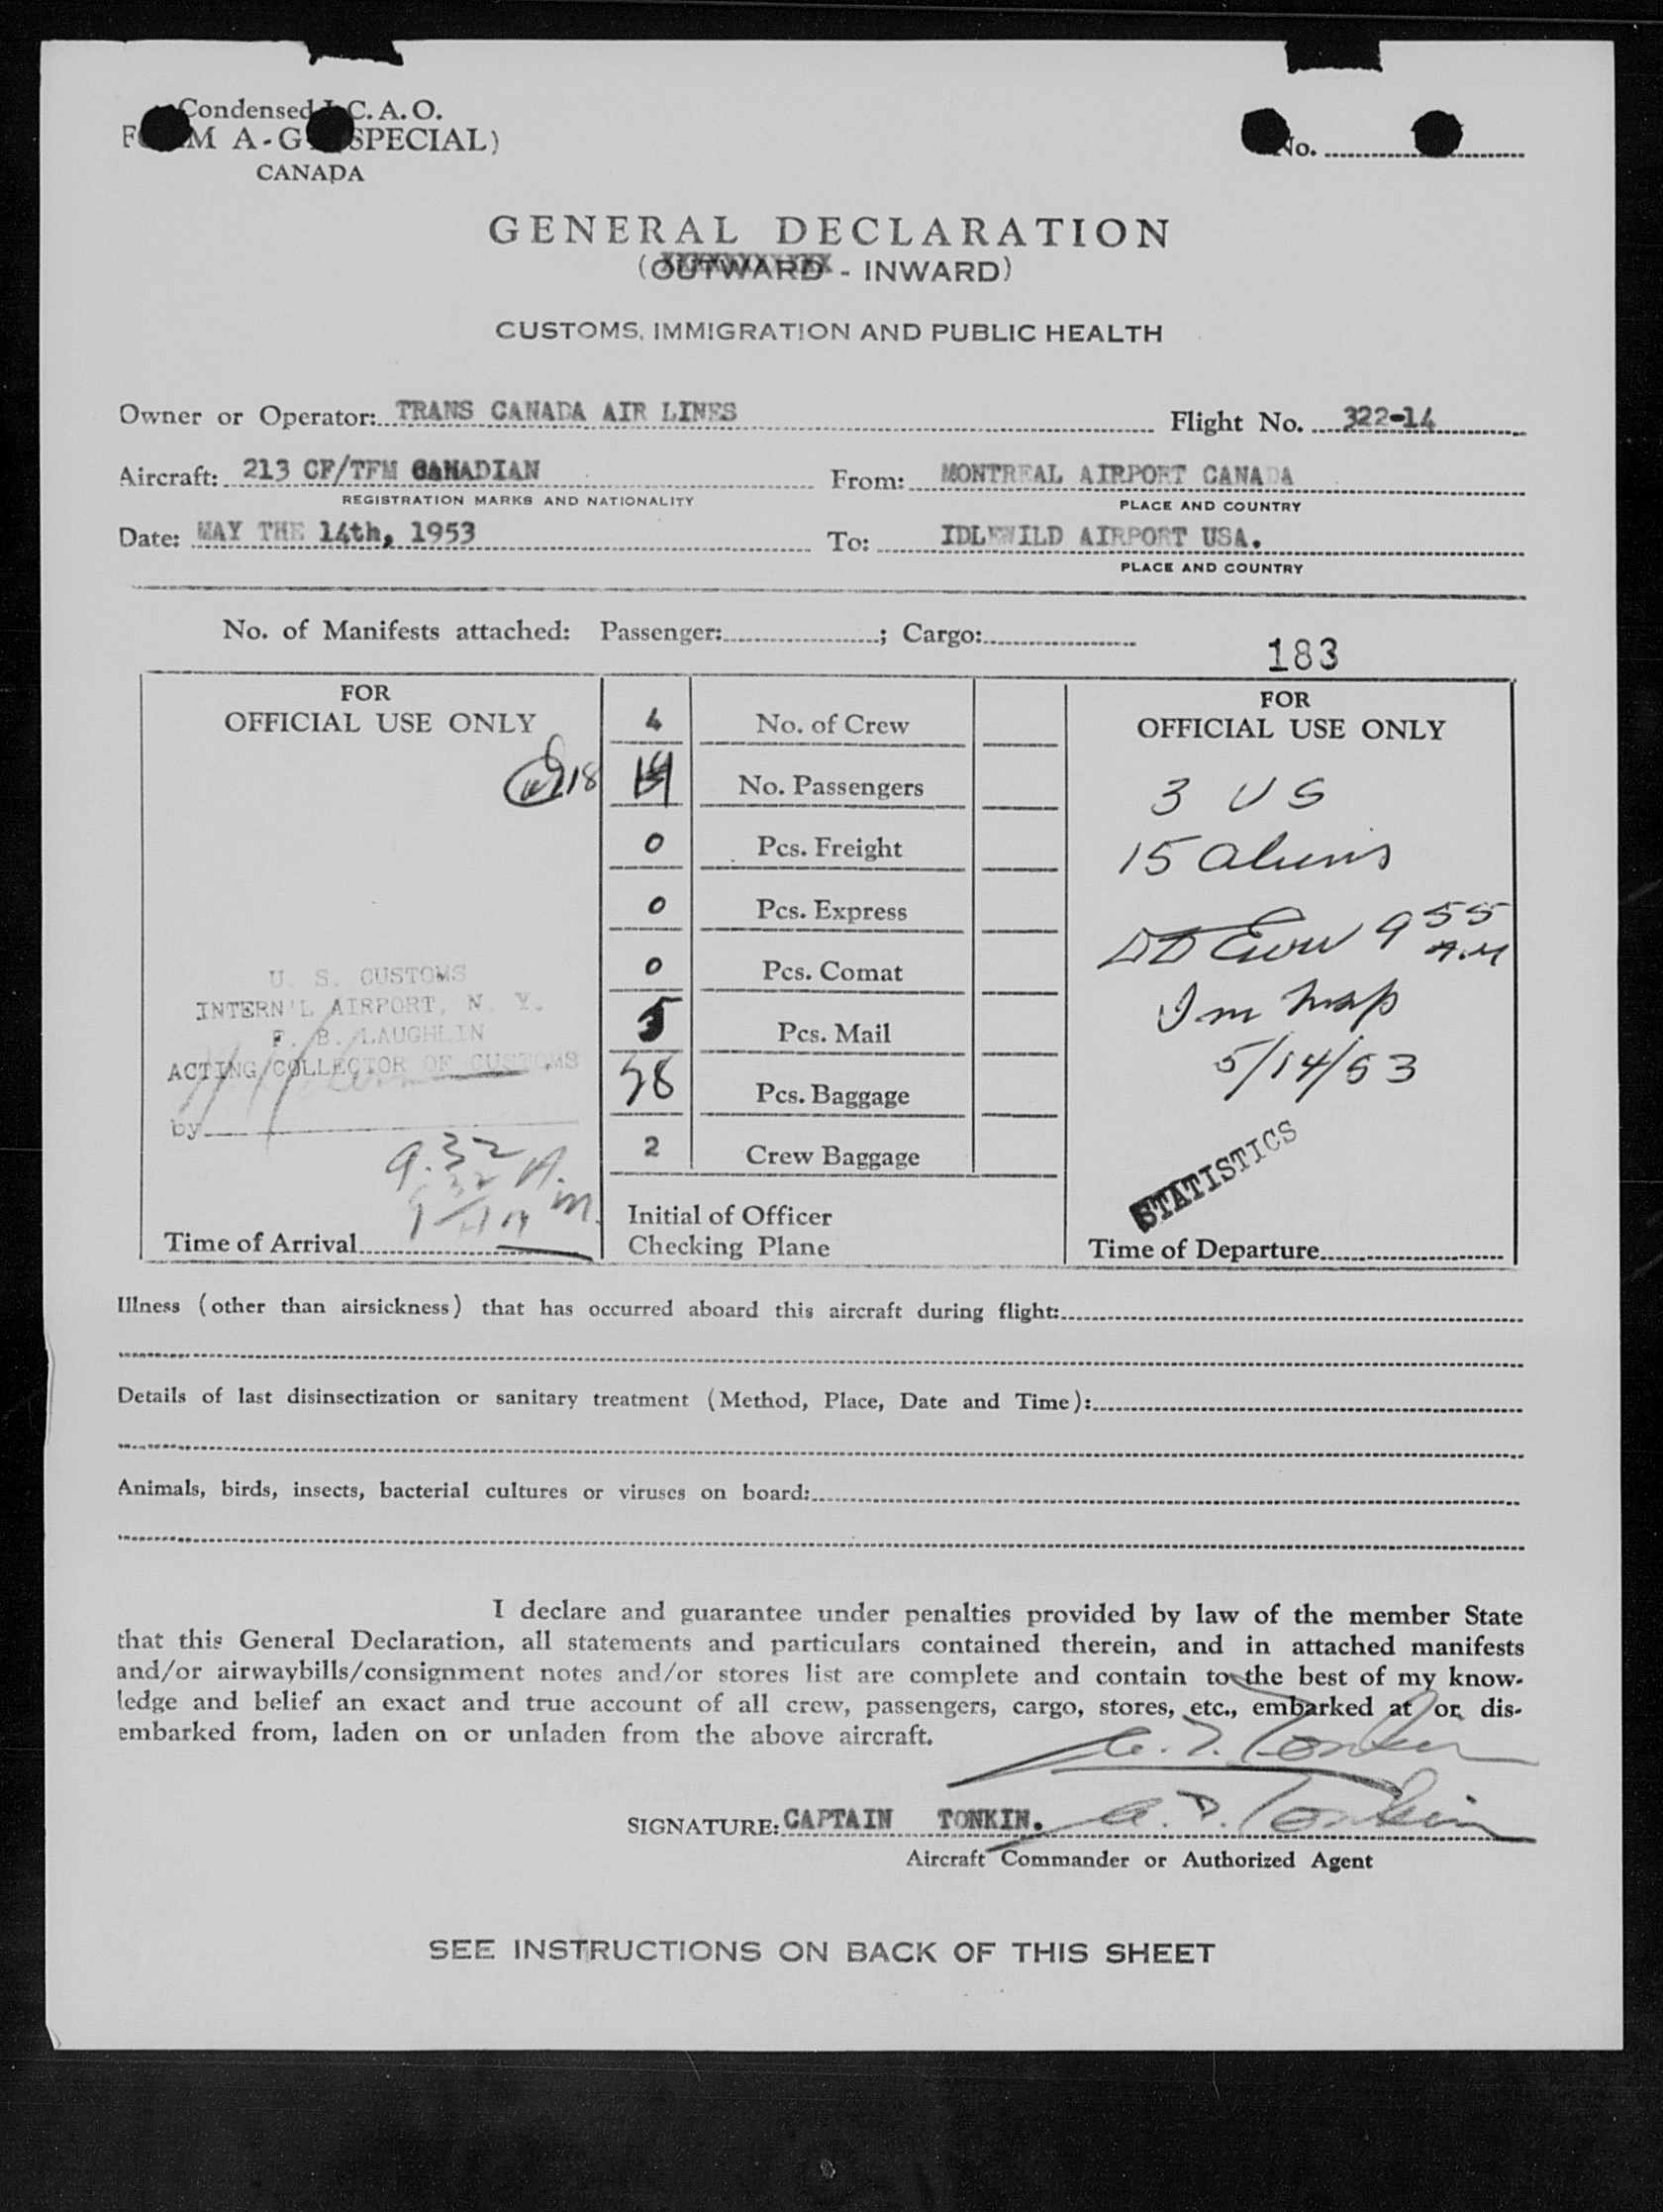 Condensed I. C. A. O.
M A-G SPECIAL)
CANADA
No.
GENERAL DECLARATION
(OUTWARD - INWARD)
CUSTOMS, IMMIGRATION AND PUBLIC HEALTH
Owner or Operator: TRANS CANADA AIR LINES Flight No. 322-14
Aircraft: 213 CF/TFM CANADIAN From: MONTREAL AIRPORT CANADA
REGISTRATION MARKS AND NATIONALITY PLACE AND COUNTRY
Date: MAY THE 14th, 1953 To: IDLEWILD AIRPORT USA.
PLACE AND COUNTRY
No. of Manifests attached: Passenger: ; Cargo:
183
FOR
OFFICIAL USE ONLY
18
U. S. CUSTOMS
INTERN'L AIRPORT, N. Y.
F. B. LAUGHLIN
ACTING COLLECTOR OF CUSTOMS
by
9.32 A.m.
Time of Arrival
4 No. of Crew
No. Passengers
0 Pcs. Freight
0 Pcs. Express
0 Pcs. Comat
5 Pcs. Mail
38 Pcs. Baggage
2 Crew Baggage
Initial of Officer
Checking Plane
FOR
OFFICIAL USE ONLY
3 US
15 aliens
9 55 A.M
Imm Insp
5/14/53
STATISTICS
Time of Departure
Illness (other than airsickness) that has occurred aboard this aircraft during flight:
Details of last disinsectization or sanitary treatment (Method, Place, Date and Time):
Animals, birds, insects, bacterial cultures or viruses on board:
I declare and guarantee under penalties provided by law of the member State
that this General Declaration, all statements and particulars contained therein, and in attached manifests
and/or airwaybills/consignment notes and/or stores list are complete and contain to the best of my know-
ledge and belief an exact and true account of all crew, passengers, cargo, stores, etc., embarked at or dis-
embarked from, laden on or unladen from the above aircraft.
A. D. Tonkin
SIGNATURE: CAPTAIN TONKIN. A. D. Tonkin
Aircraft Commander or Authorized Agent
SEE INSTRUCTIONS ON BACK OF THIS SHEET